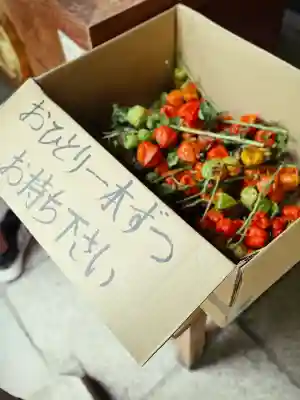 おひとり一本ずつ
お持ち下さい